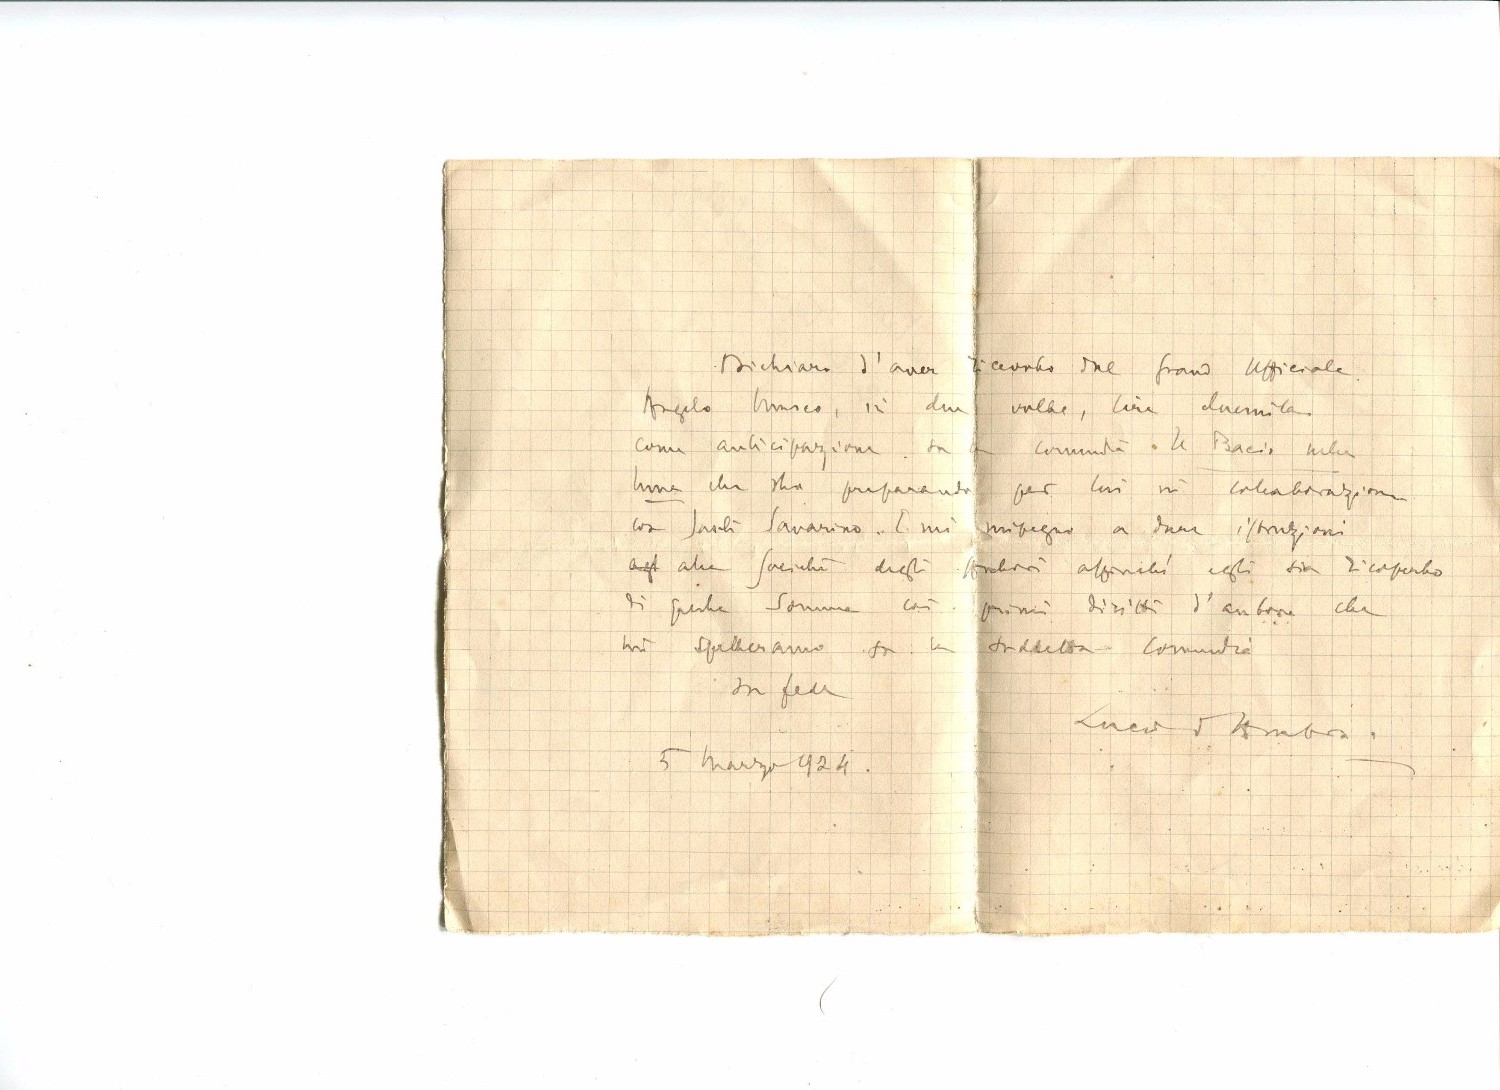 Dichiaro d'aver ricevuto dal Grand Ufficiale
Angelo Musco, in due volte, lire duemila
come anticipazione su la commedia "Il Bacio nella
luna che sto preparando per lui in collaborazione
con Santi Savarino. E mi impegno a dare istruzioni
alla Società degli Autori affinché egli sia ricoperto
di questa somma coi primi diritti d'autore che
mi spetteranno su la suddetta commedia
In fede
Lucio d'Ambra.
5 marzo 924.